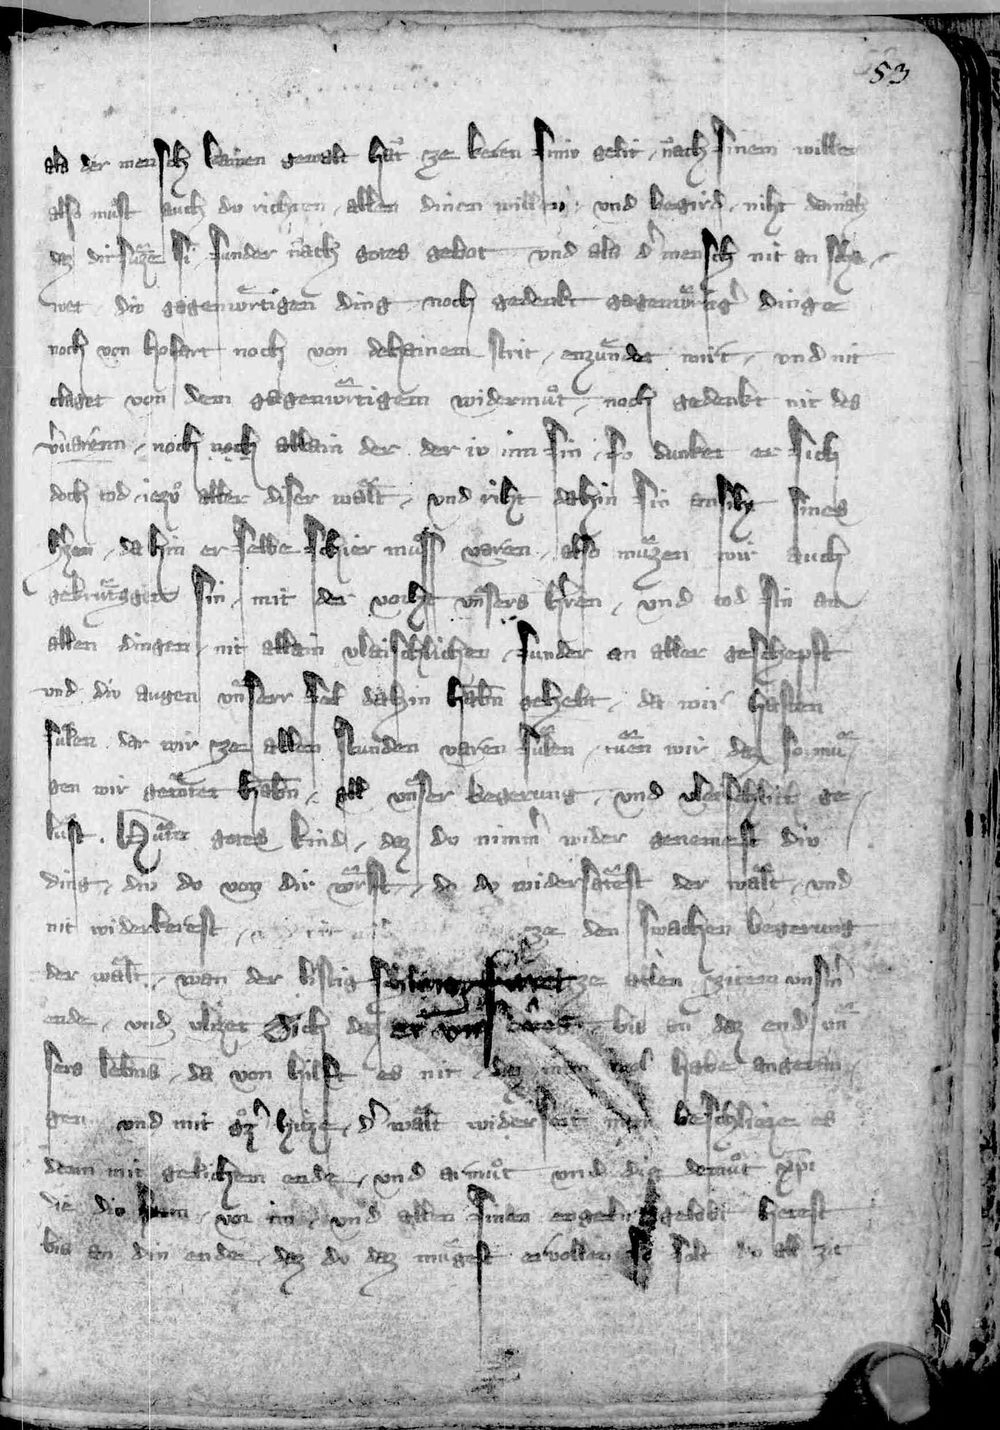 53
als der mensch kainen gewalt hat ze keren siniv gelit nach sinem willen
also must auch du richten allen dinen willen und begird niht darnach
daz dir suͤze si sunder nach gotes gebot und als d' mensch nit an scha
wet div gagenwaͤrtigen ding noch gedenkt gagenwaͤrtig' dinge
noch von hofart noch von dehainem strit enzuͤndet wirt und nit
claget von dem gagenwaͤrtigem widermuͦt noch gedenkt nit des
noch allain der der iv inn sin so dunket er sich
doch tod iezuͦ aller diser waͤlt und riht dahin sin ansiht sines
h'zen da hin er selbe schier muͦss varen also muͤzen wir auch
gekruͤtzget sin mit der vorht vnsers h'ren und tod sin an
allen dingen nit allain vlaischlichen sunder an aller geschepft
und div augen vnserr sel dahin habn gehebt da wir hasten
suͤlen dar wir ze allen stunden varen suͤlen tuͤen wir daz so muͤ
gen wir getoͤtet habn all vnser begerung und ge
lust . Huͤtt gotes kind daz du nimm' wider genemest div
ding div du von dir wuͤrfst do du widersatest der waͤlt und
nit widerkerest ze den swachen begerung
der waͤlt wan der listig ze allen ziten unsir
ende und vlizet Sich daz er vns bis an daz end vn
sers lebens da von hilft es nit daz man wol habe angevan
gen und mit groͤz' hitze d' waͤlt widersait man beschlieze es
denn mit gelichem ende und armuͦt und die demuͦt xpi
die div vor im und allen sinen engeln gelobt herest
bis an din ende daz du daz muͤgest ervollen so solt du all zit